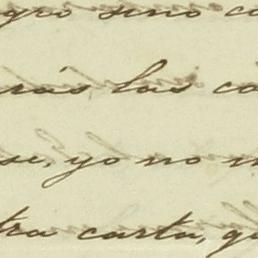 gro sino co
rás las co
se, yo no m
tra carta, qu